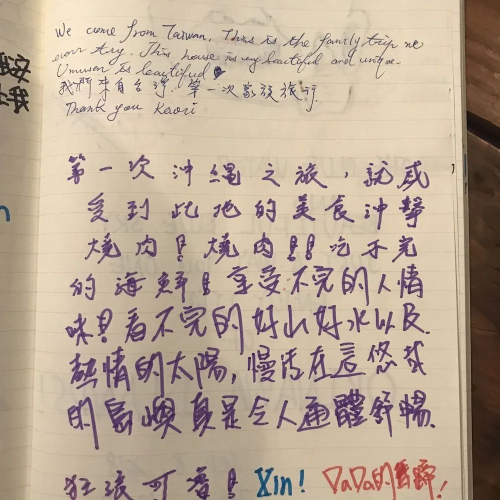 We come from Taiwan, This is the family trip we
ever try. This house is very beautiful and unique.
Umusun is beautiful
我們來自台灣,第一次家族旅行.
Thank you Kaori
第一次沖繩之旅,就感
受到此地的美食沖擊
燒肉!!燒肉!!!吃不完
的海鮮!!享受不完的人情
味!!看不完的好山好水以及.
熱情的太陽,慢活在這悠哉
的島嶼真是令人通體舒暢.
可 Xin! DaDa的